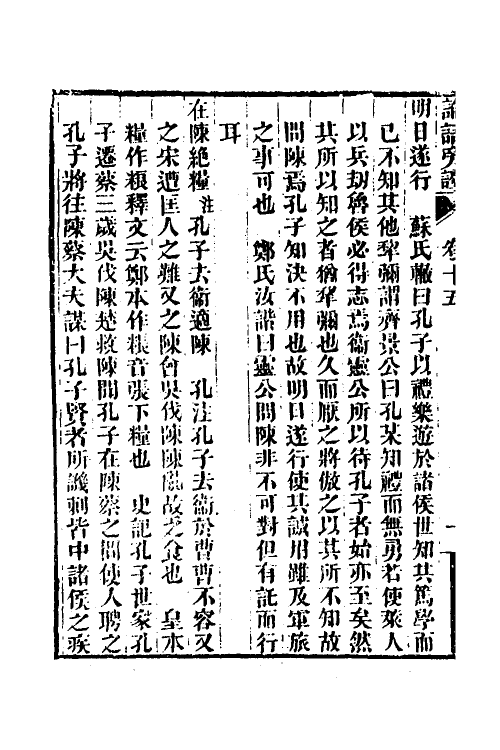 論語旁證 卷十五 一
明日遂行　蘇氏轍曰孔子以禮樂遊於諸侯世知其篤學而
已不知其他犂彌謂齊景公曰孔某知禮而無勇若使萊人
以兵劫魯侯必得志焉衞靈公所以待孔子者始亦至矣然
其所以知之者猶犂彌也久而厭之將傲之以其所不知故
問陳焉孔子知決不用也故明日遂行使其誠用雖及軍旅
之事可也　鄭氏汝諧曰靈公問陳非不可對但有託而行
耳
在陳絶糧注孔子去衞適陳　孔注孔子去衞於曹曹不容又
之宋遭匡人之難又之陳會吳伐陳陳亂故乏食也　皇本
糧作粮釋文云鄭本作粻音張下糧也　史記孔子世家孔
子遷蔡三歲吳伐陳楚救陳聞孔子在陳蔡之間使人聘之
孔子將往陳蔡大夫謀曰孔子賢者所譏刺皆中諸侯之疾